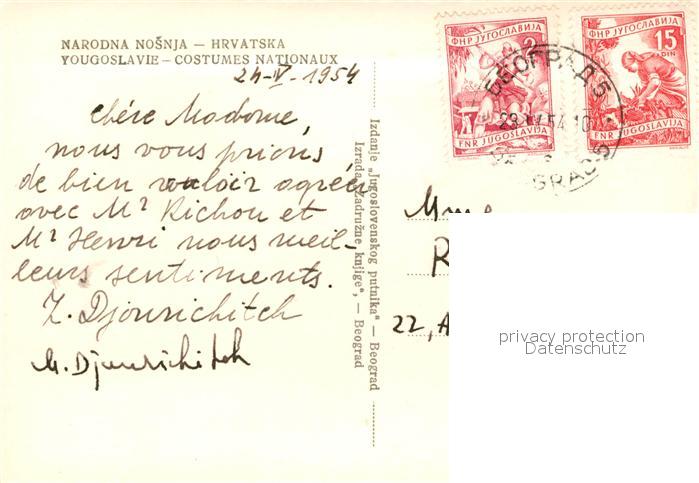 NARODNA NOŠNJA — HRVATSKA
YOUGOSLAVIE — COSTUMES NATIONAUX
24-V-1954
chère Madame,
nous vous prions
de bien vouloir agréer
avec Mr Richou et
Mr Henri nous meil-
leurs sentiments.
Z. Djourichitch
M. Djourichitch
Izdanje „Jugoslovenskog putnika" — Beograd
Izrada „Zadružne knjige", — Beograd
ФНР ЈУГОСЛАВИЈА
2
FNR JUGOSLAVIJA
ФНР ЈУГОСЛАВИЈА
15
DIN
FNR JUGOSLAVIJA
БЕОГРАД 5
54 10
Mme
R
22, A
privacy protection
Datenschutz